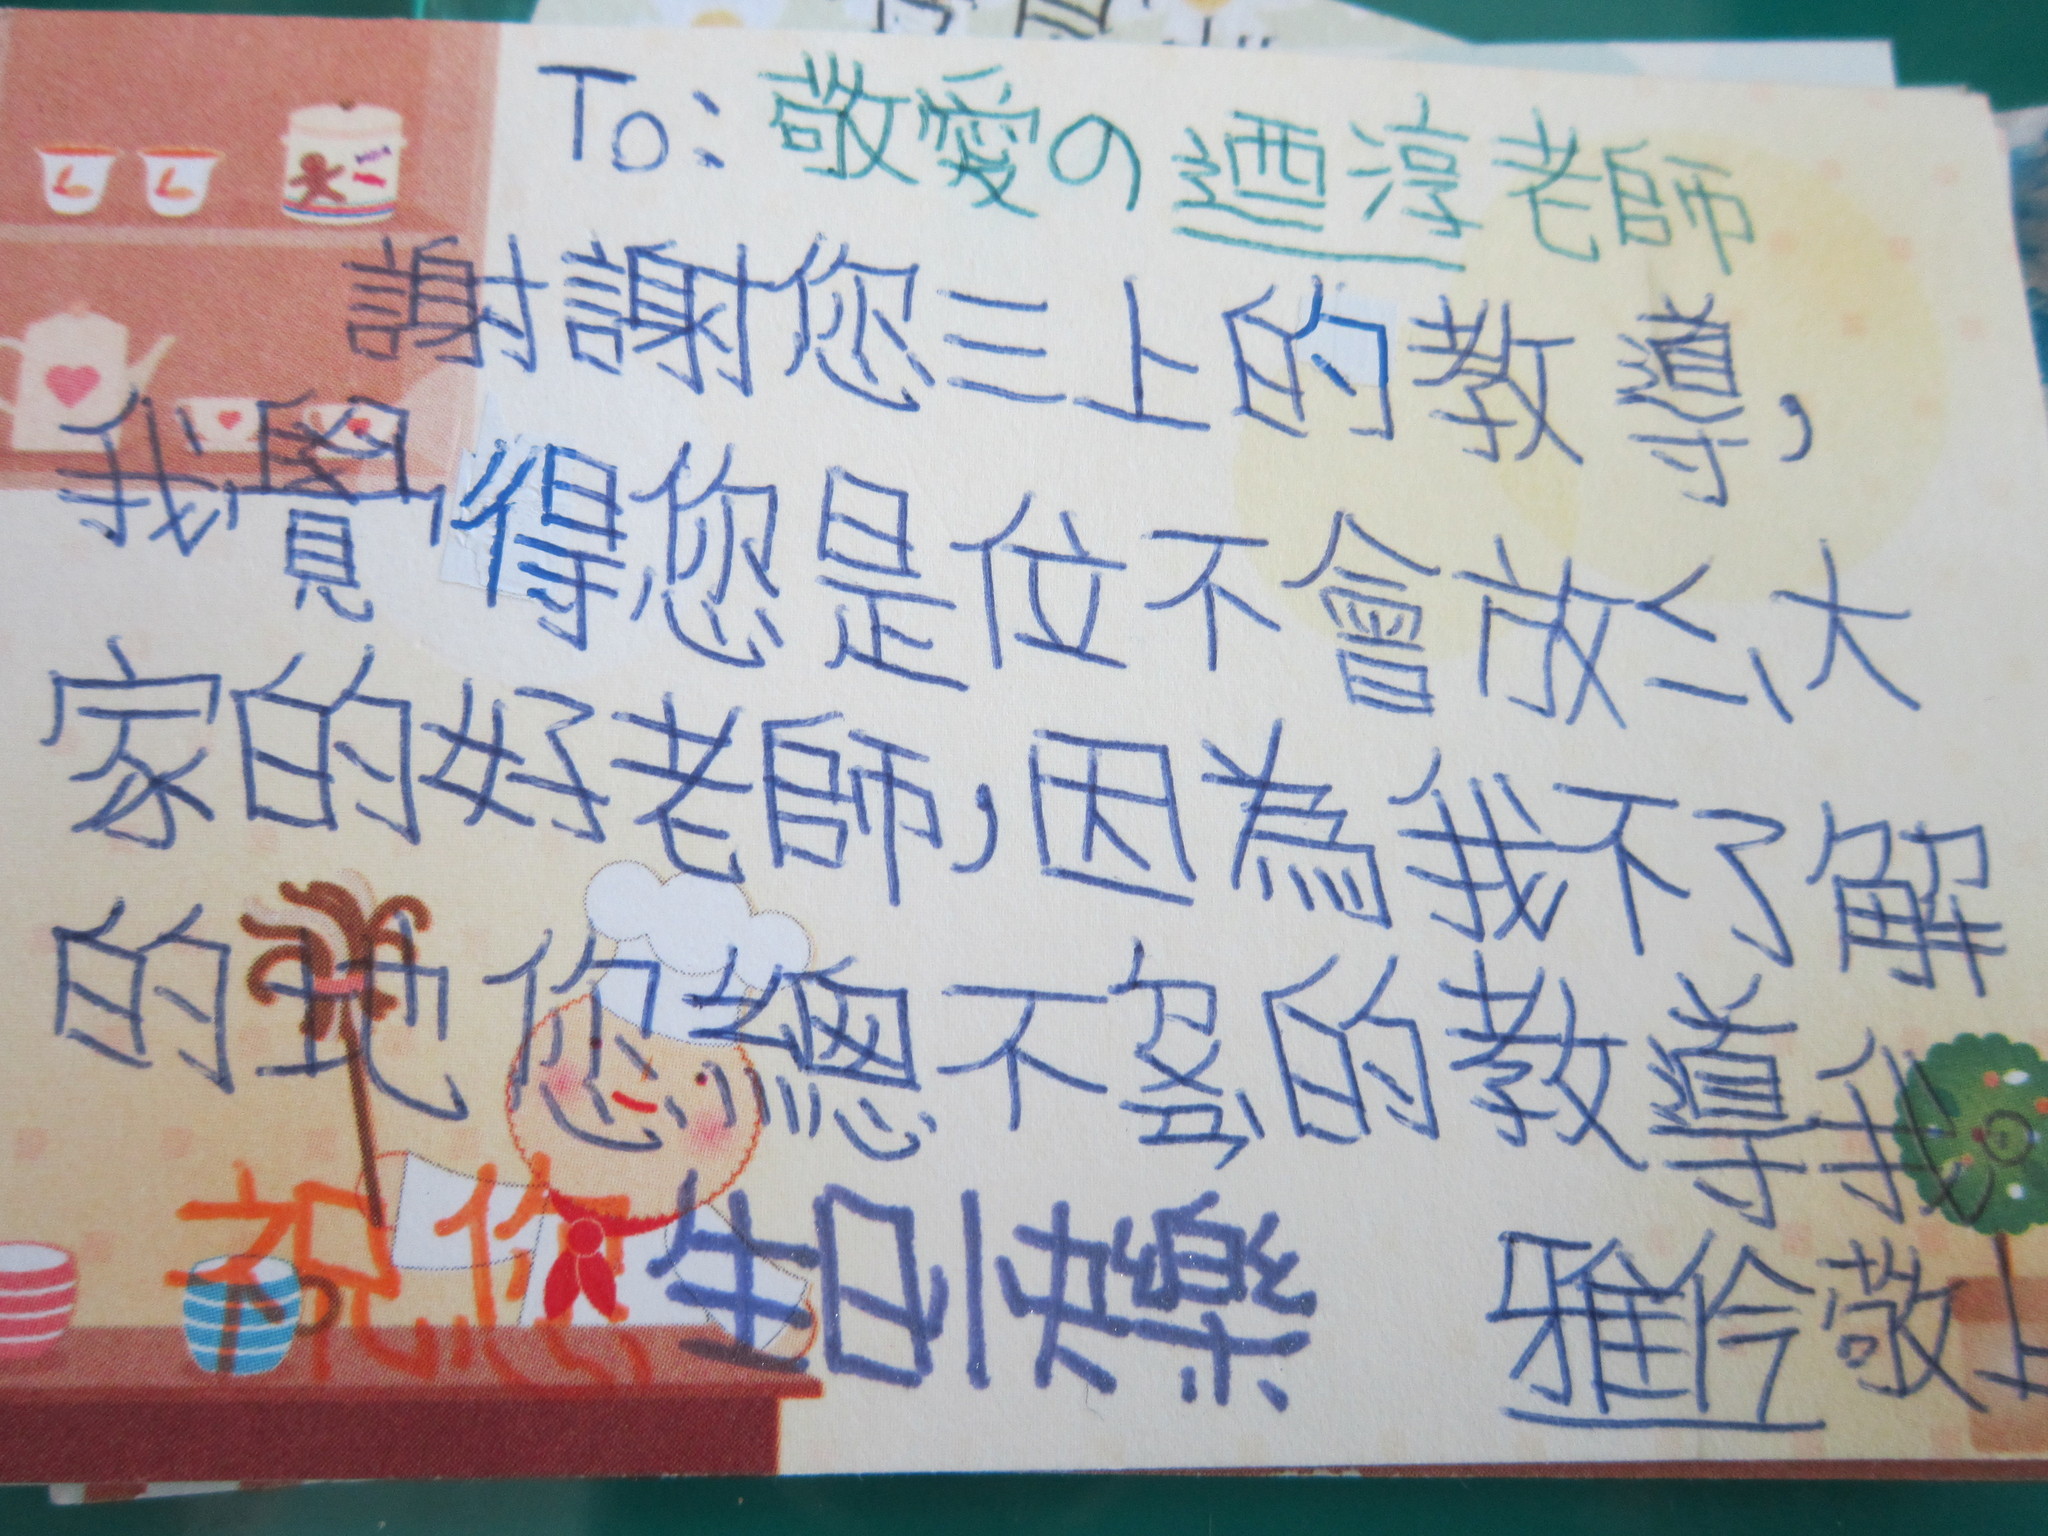 To:敬愛の迺淳老師
謝謝您三上的教導,
我覺得您是位不會放任大
家的好老師,因為我不了解
的地您總不	的教導我
祝您生日快樂 雅伶敬上